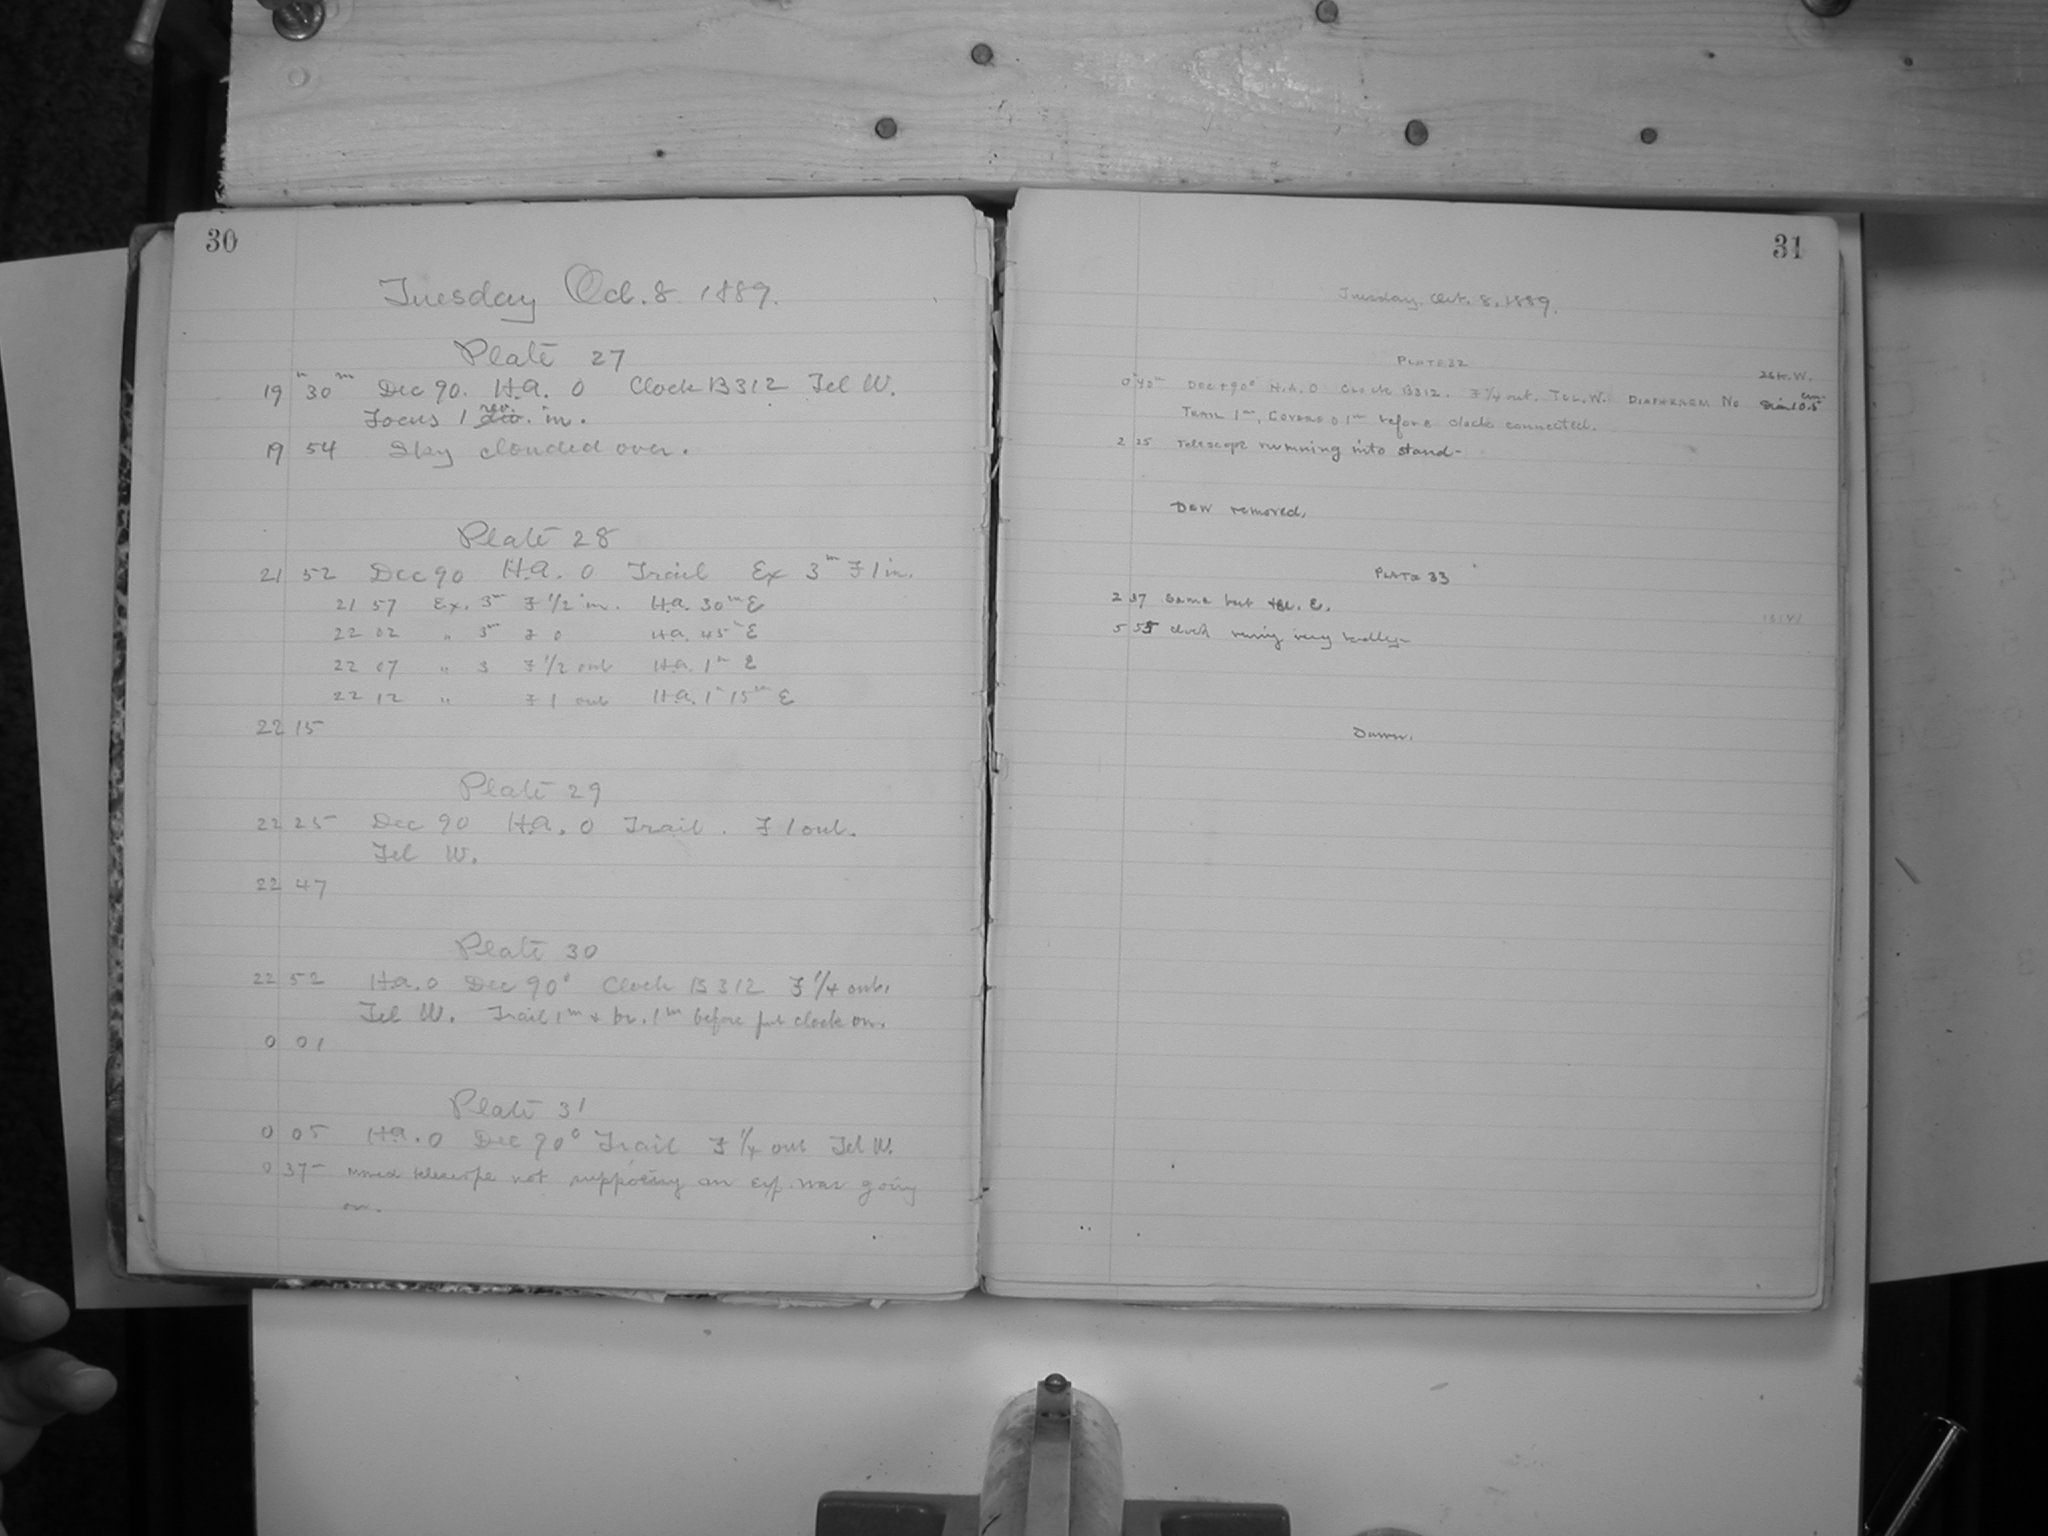 30
Tuesday Oct. 8 1889.
Plate 27
19 h 30 m Dec 90. H.a. 0 Clock B312 Tel W.
Focus 1 rev. in.
19 54 Sky clouded over.
Plate 28
21 52 Dec 90 H.a. 0 Trail Ex 3m F 1 in.
21 57 Ex. 3m F 1/2 in. H.a. 30m E
22 02 " 3m F 0 H.a. 45m E
22 07 " 3 F 1/2 out H.a. 1h E
22 12 " F 1 out H.a. 1h 15m E
22 15
Plate 29
22 25 Dec 90 H.a. 0 Trail. F 1 out.
Tel W.
22 47
Plate 30
22 52 H.a. 0 Dec 90° Clock B312 F 1/4 out.
Tel W. Trail 1m + 1m before put clock on.
0 01
Plate 31
0 05 H.a. 0 Dec 90° Trail F 1/4 out Tel W.
0 37 moved telescope not supposing an exp. was going
on.
31
Tuesday, Oct. 8, 1889.
PLATE 32
0 45 DEC +90° H.A. 0 CLOCK B312. F 1/4 out. TEL. W. DIAPHRAGM No 10.5 cm.
TRAIL 1m, COVERED 1m before clock connected.
2 25 Telescope running into stand-
DEW removed.
PLATE 33
2 37 Same but tel. E.
5 55 clock running very badly-
Dawn.